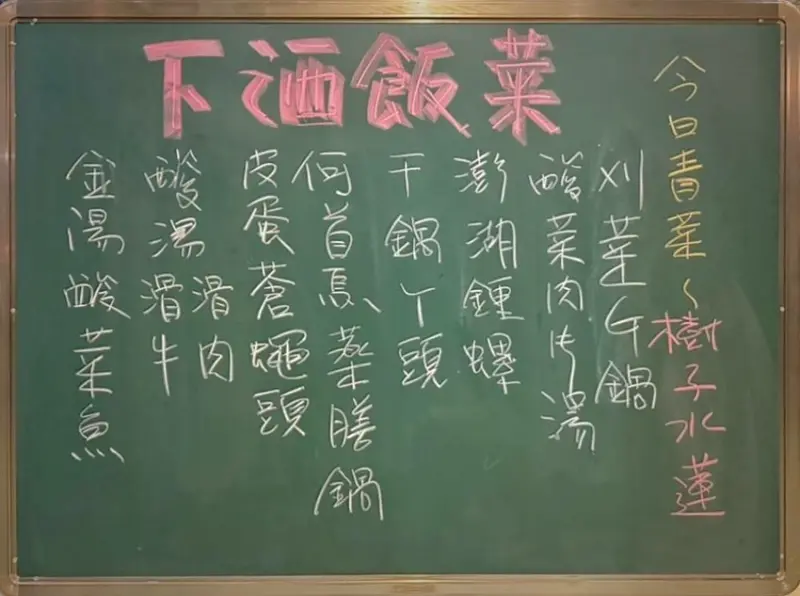 下酒飯菜
今日青菜~樹子水蓮
刈菜ㄐ鍋
酸菜肉片湯
澎湖鍾螺
干鍋丫頭
何首烏藥膳鍋
皮蛋蒼蠅頭
酸湯滑牛 滑肉
金湯酸菜魚